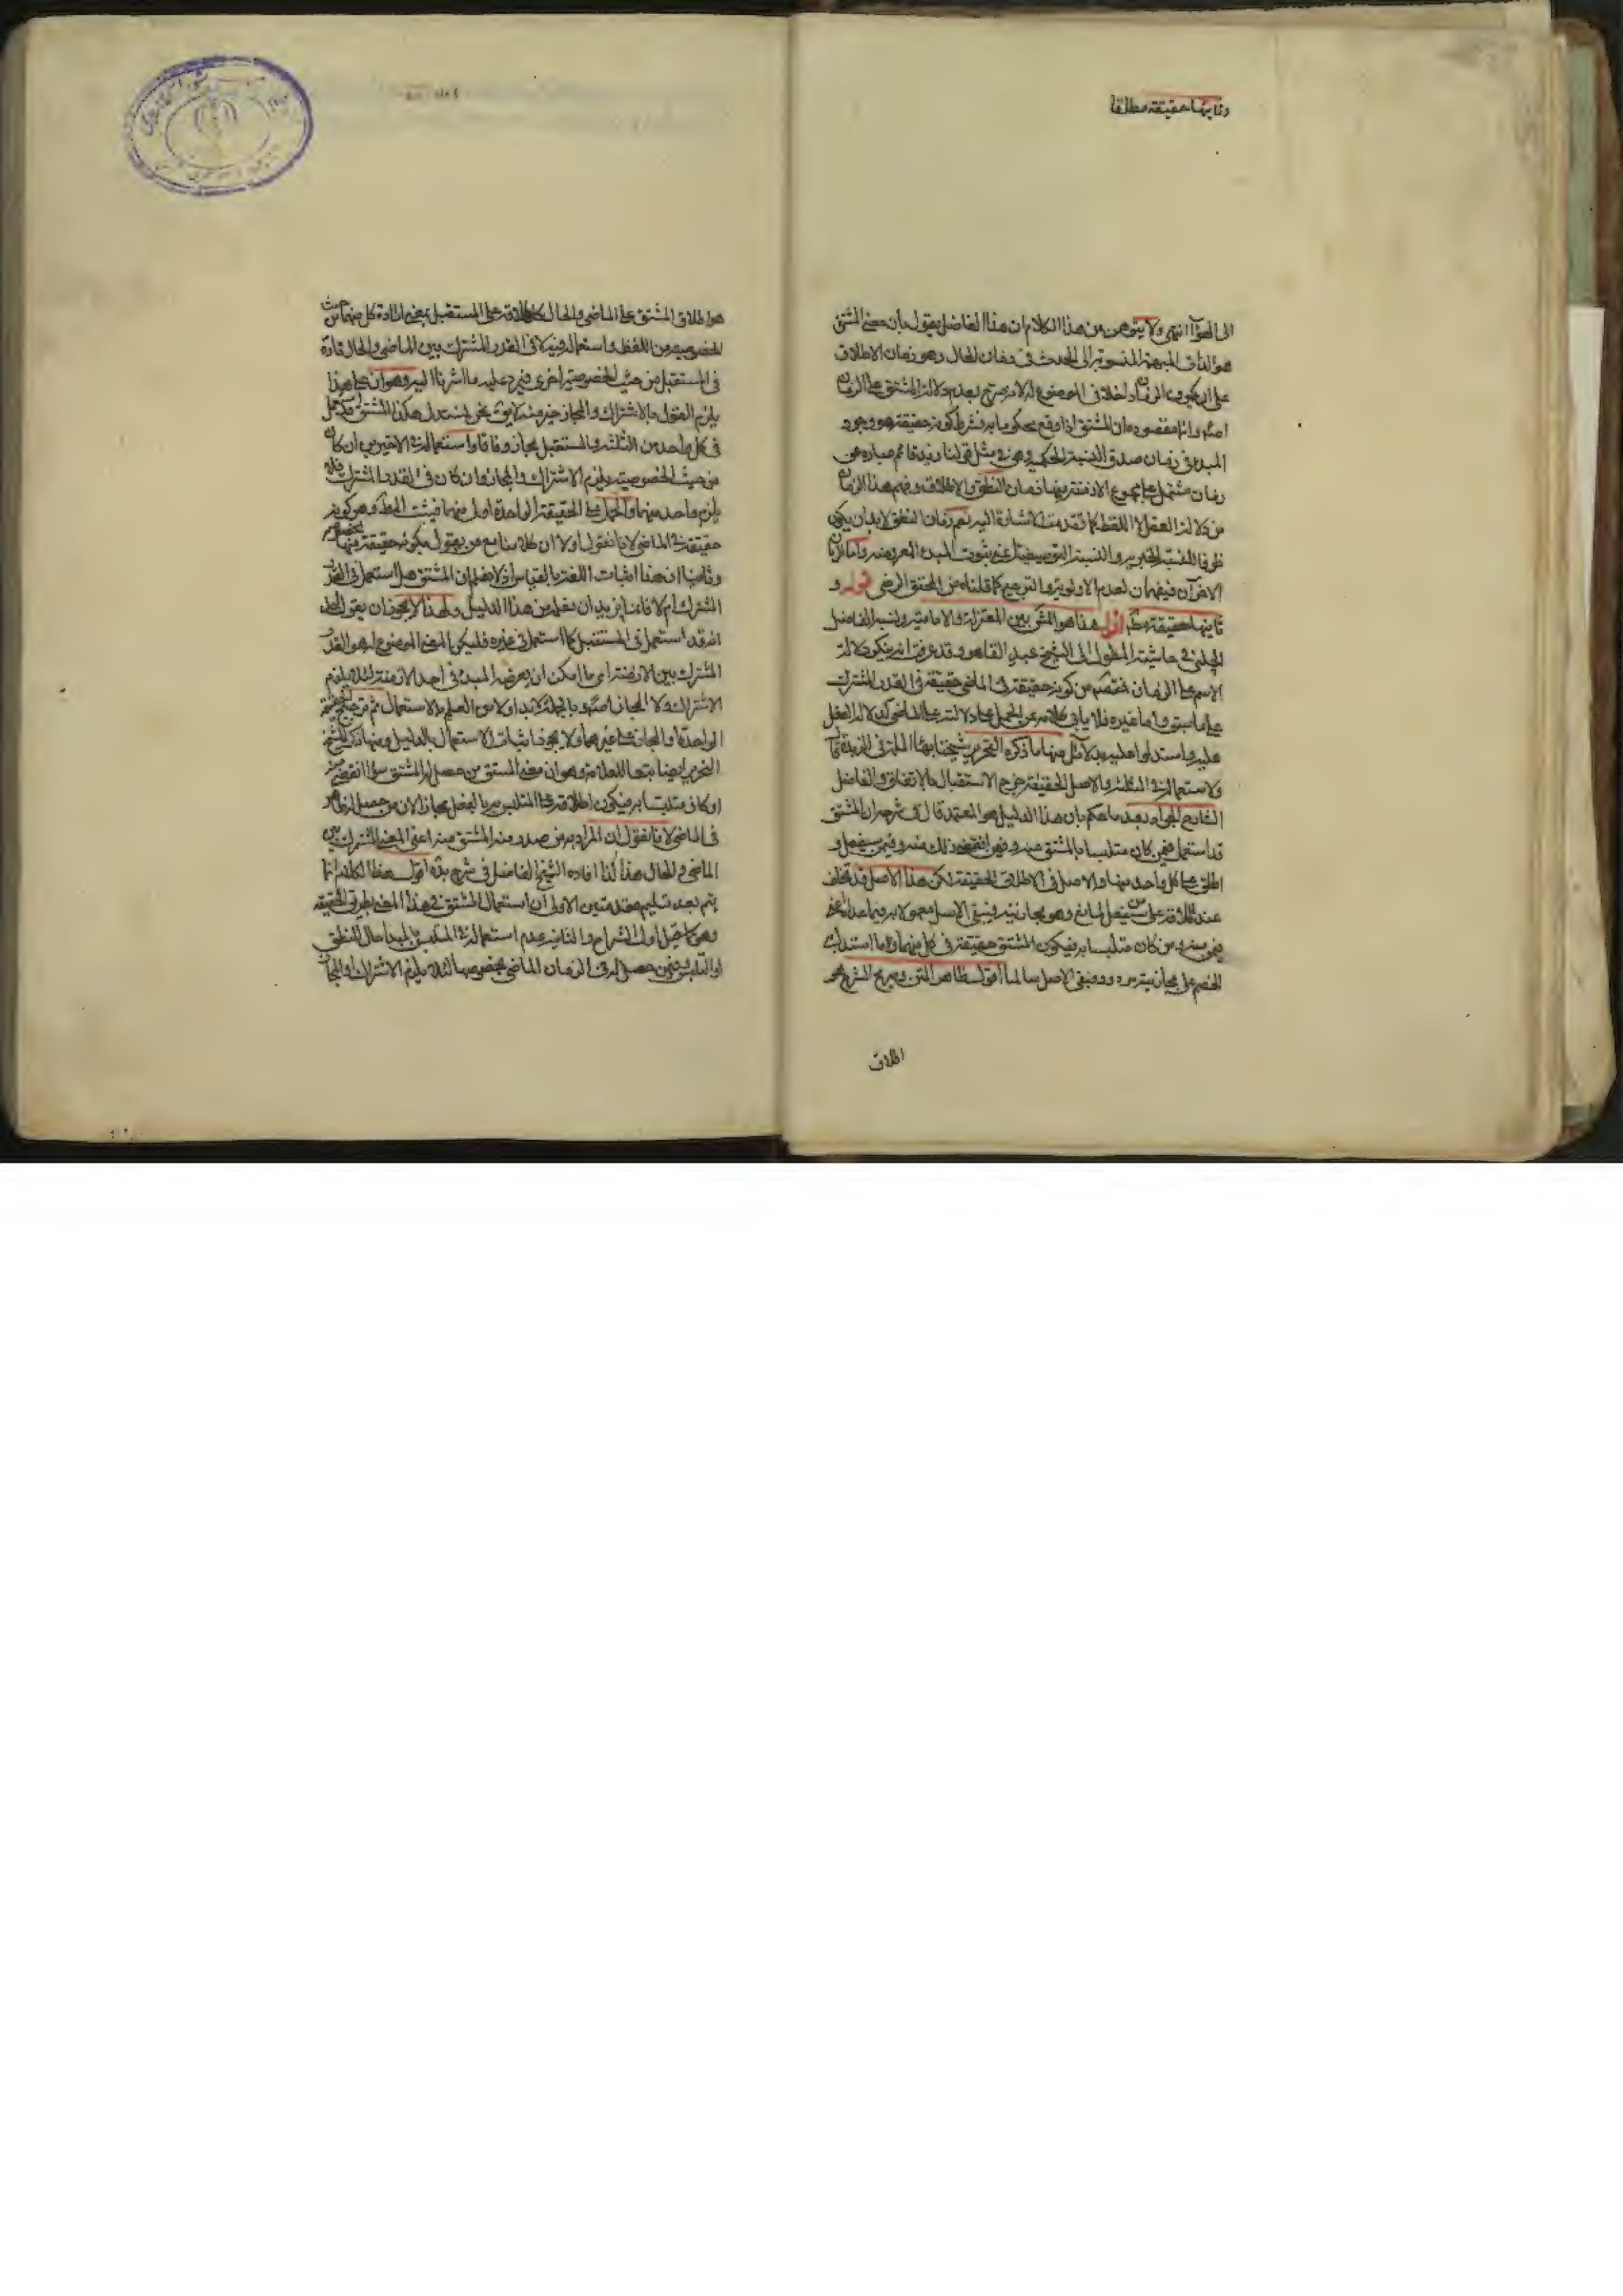 وثانيها حقيقة مطلقا
الى الهواء انتهى ولا يتوهمن من هذا الكلام ان هذا الفاضل يقول بان معنى المشتق
هو الذات المبهمة المنسوبة الى الحدث فى زمان الحال وهو زمان الاطلاق
على ان يكون الزمان داخلا فى الموضوع له لانه صرح بعدم دلالة المشتق على الزمان
اصلا وانما مقصوده ان المشتق اذا وقع محكوما به فشرط كونه حقيقة هو وجود
المبدء فى زمان صدق النسبة الحكمية وهى فى مثل قولنا زيد قائم عبارة عن
زمان مشتمل على مجموع الازمنة منها زمان النطق والاطلاق وفهم هذا الزمان
من دلالة العقل لا اللفظ كما تقدمت الاشارة اليه نعم زمان النطق لابد ان يكون
ظرفا للنسبة الخبرية والنسبة التوصيفية اعنى ثبوت المبدء المعبر عنه واما الزمانان
الاخران فيفهمان لعدم الاولوية والترجيح كما قلناه من المحقق الرضى قوله و
ثانيها حقيقة مط اقول هذا هو المش بين المعتزلة والامامية ونسبه الفاضل
الچلبى فى حاشية المطول الى الشيخ عبد القاهر وقد عرفت انه ينكر دلالة
الاسم على الزمان فمقصدهم من كونه حقيقة فى الماضى حقيقة فى القدر المشترك
على ما سبق واما غيره فلا يابى كلامه عن الحمل على دلالته على الماضى كدلالة الفعل
عليه واستدلوا عليه بدلائل منها ما ذكره النحرير شيخنا بهاء الملة فى الزبدة قال
ولاستعماله فى الثلثة والاصل الحقيقة خرج الاستقبال بالاتفاق والفاضل
الشارح الجواد بعد ما حكم بان هذا الدليل هو المعتمد قال فى شرحه ان المشتق
قد استعمل فيمن كان متلبسا بالمشتق منه وفيمن انقضى ذلك منه وفيمن سيفعل و
اطلق على كل واحد منها والاصل فى الاطلاق الحقيقة لكن هذا الاصل قد تخلف
عند اطلاقه على من سيفعل لمانع وهو مجازيته فيبقى الاصل معمولا به فيما عداه
فيمن كان متلبسا به فيكون المشتق حقيقة فى كل منهما واما استدلال
الخصم على مجازيته مردود فبقى الاصل سالما اقول ظاهر المتن وصريح الشرح هو
اطلاق
هو اطلاق المشتق على الماضى والحال كاطلاقه على المستقبل بمعنى ارادة كل منهما من حيث
الخصوصية من اللفظ واستعماله فيه لا فى القدر المشترك بين الماضى والحال تارة
فى المستقبل من حيث الخصوصية اخرى فيرد عليه ما اشرنا اليه وهو ان على هذا
يلزم القول بالاشتراك والمجاز خير منه لا يق نحن نستدل هكذا المشتق قد استعمل
فى كل واحد من الثلثة والمستقبل مجاز وفاقا واستعماله فى الاخيرين ان كان
من حيث الخصوصية يلزم الاشتراك والمجاز وان كان فى القدر المشترك فلا
يلزم واحد منهما والحمل على الحقيقة الواحدة اولى منهما فيثبت المط وهو كونه
حقيقة فى الماضى لانا نقول اولا ان كلامنا مع من يقول بكونه حقيقة فيهما بخصوصهما
وثانيا ان هذا اثبات اللغة بالقياس اذ لا يعلم ان المشتق هل استعمل فى القدر
المشترك ام لا فانما يريد ان يعلم من هذا الدليل ولهذا لا يجوز ان يقول الخصم
انه قد استعمل فى المستقبل كما استعمل فى غيره فليكن المعنى الموضوع له هو القدر
المشترك بين الازمنة اى ما امكن ان يعرضه المبدء فى احد الازمنة لئلا يلزم
الاشتراك ولا المجاز اصلا وبالجملة لابد اولا من العلم بالاستعمال ثم ترجيح الحقيقة
الواحدة او المجاز على غيرهما ولا يجوز اثبات الاستعمال بالدليل ومنها ما ذكره الشيخ
النحرير ايضا تبعا للعلامة وهو ان معنى المشتق من حصل له المشتق سواء انقضى منه
او كان متلبسا به فيكون اطلاقه على المتلبس به بالفعل مجازا لان من حصل له ظاهر
فى الماضى لانا نقول ان المراد به من صدر منه المشتق منه اعنى المعنى المشترك بين
الماضى والحال هذا كذا افاده الشيخ الفاضل فى شرح اقول هذا الكلام انما
يتم بعد تسليم مقدمتين الاولى ان استعمال المشتق فى هذا المعنى بطريق الحقيقة
وهو كاصل اول الشرام والثانية عدم استعماله فى المتلبس بالمبدا حال النطق
او التلبس وفيمن حصل له فى الزمان الماضى بخصوصهما لئلا يلزم الاشتراك او المجاز